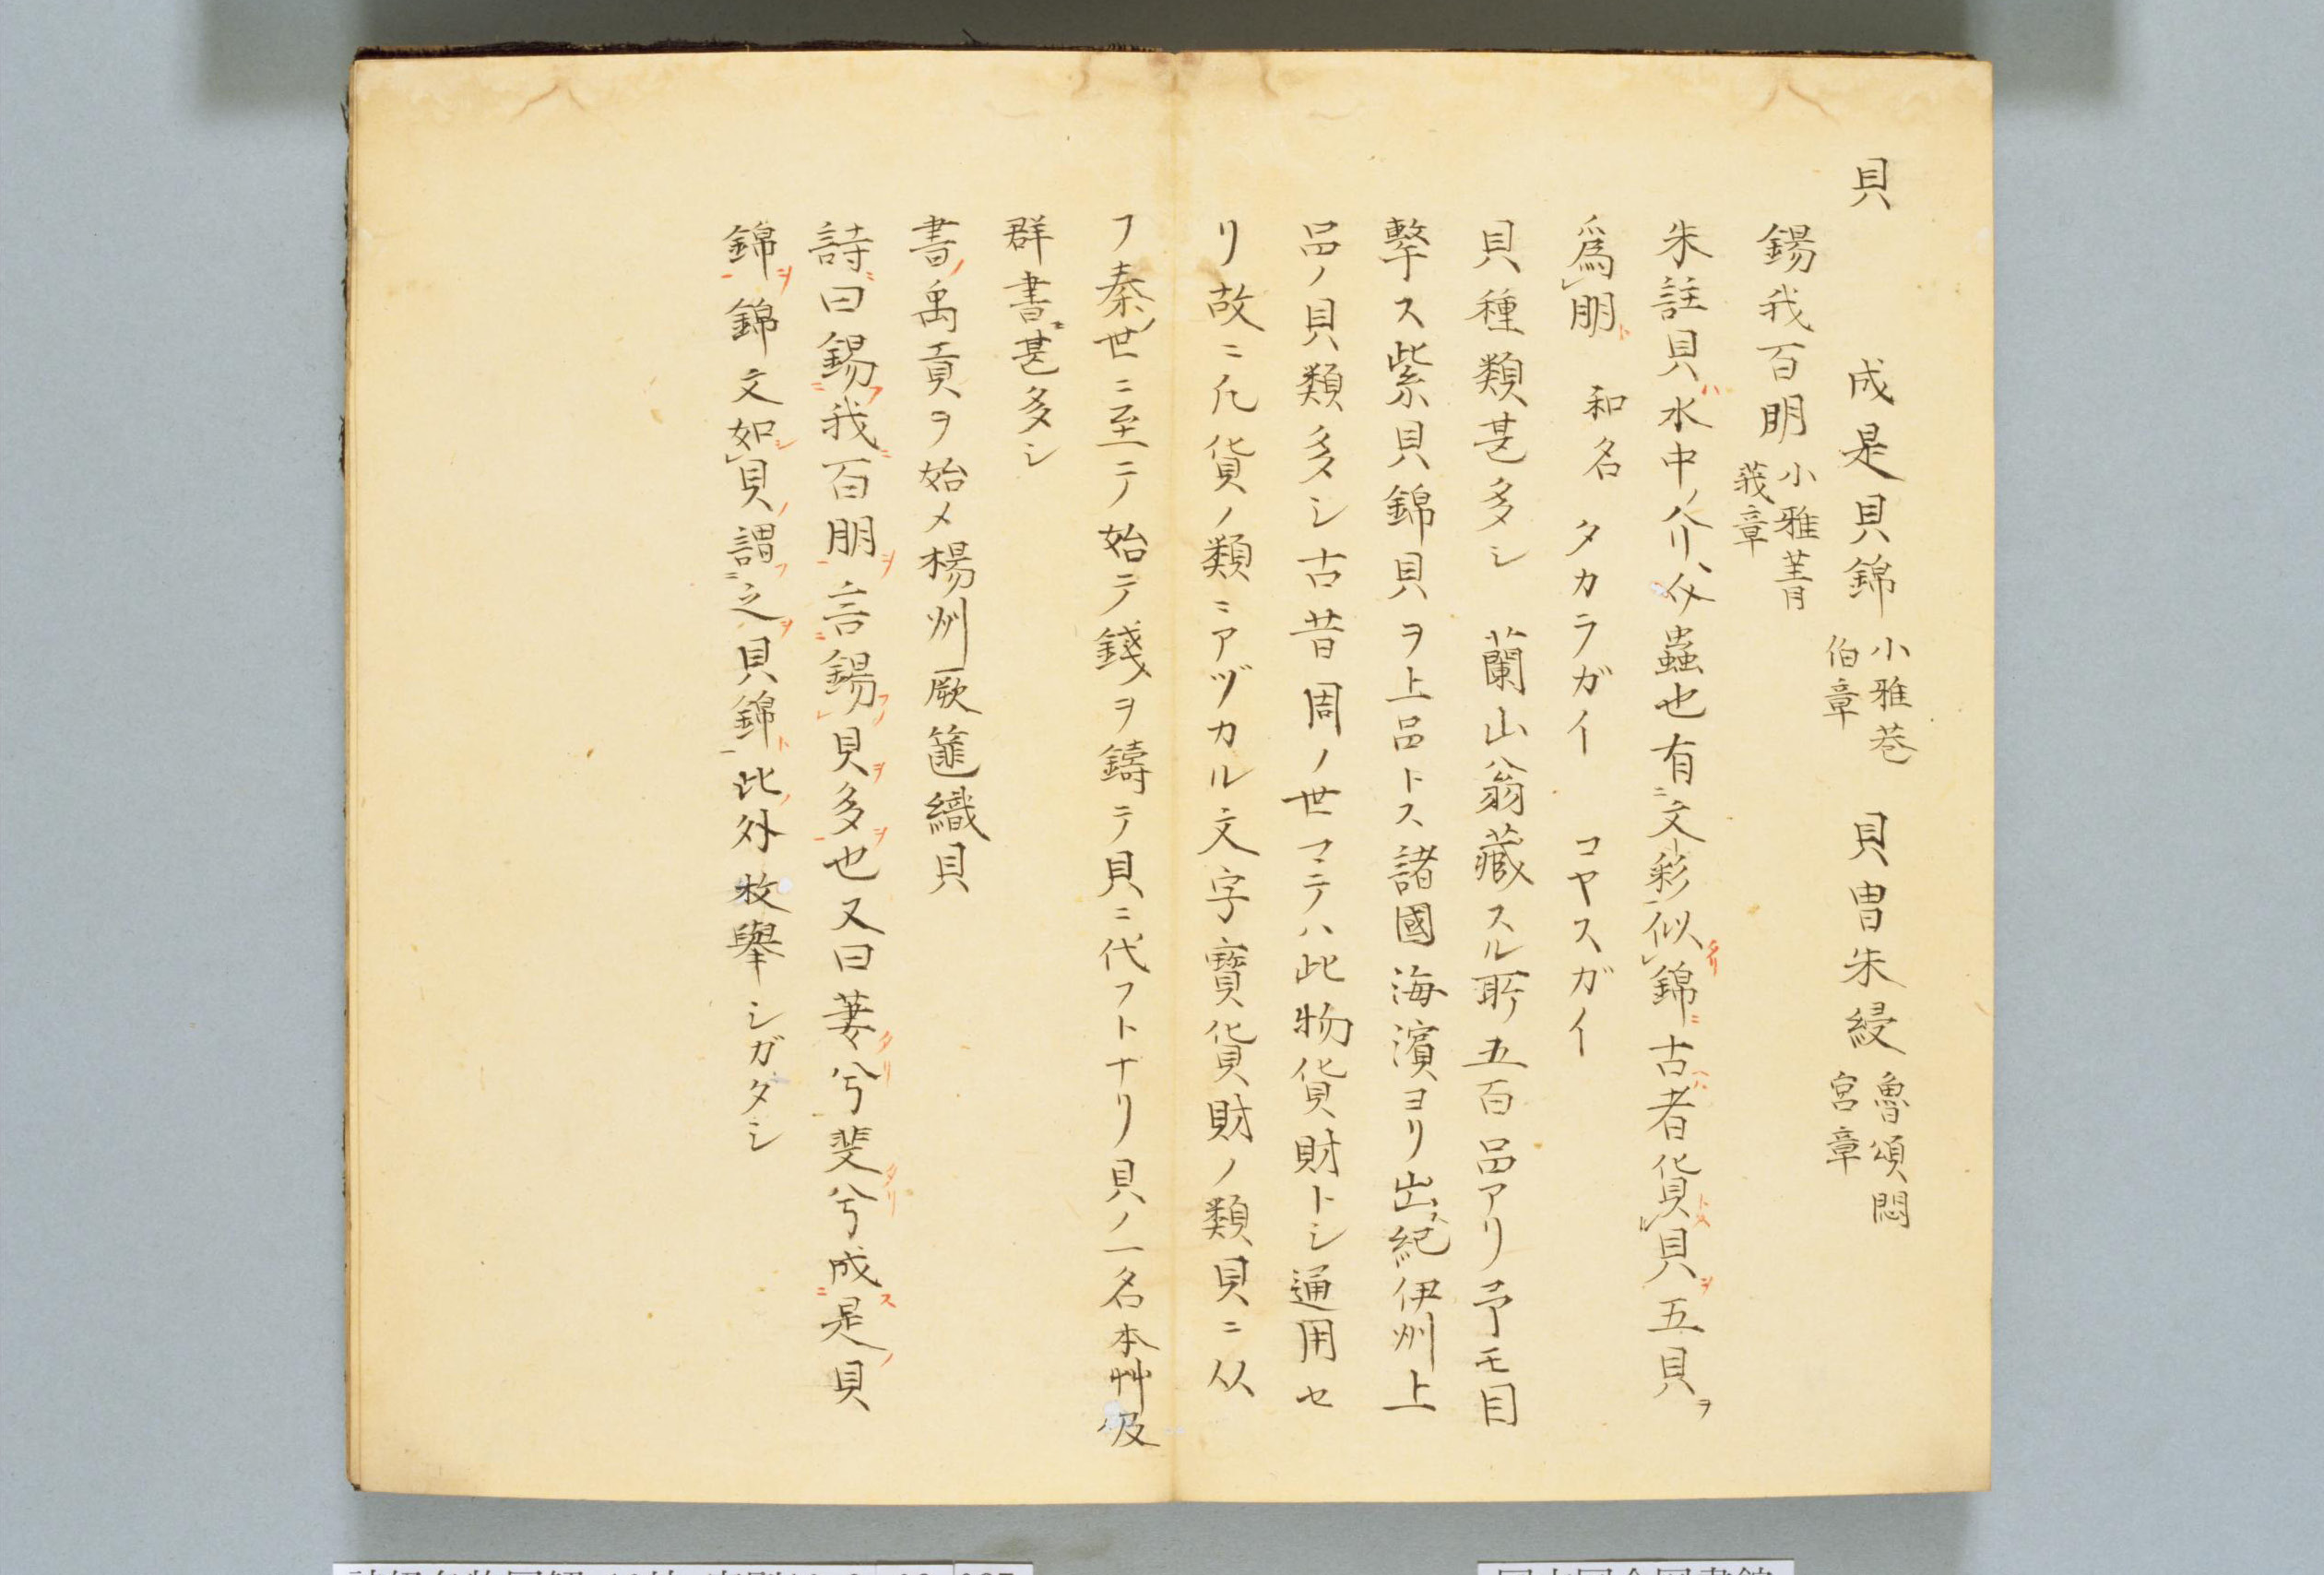 貝　成是貝錦 小雅巷伯章　貝冑朱綅 魯頌悶宮章
錫我百朋 小雅菁莪章
朱註貝ハ水中ノ介ノ蟲也有ニ文彩似タリ錦ニ古者ハ貨トス貝ヲ五貝ヲ
爲朋ト　和名　タカラガイ　コヤスガイ
貝種類甚多シ　蘭山翁藏スル所五百品アリ予モ目
擊ス紫貝錦貝ヲ上品トス諸國海濱ヨリ出ヅ紀伊州上
品ノ貝類多シ古昔周ノ世マテハ此物貨財トシ通用セ
リ故ニ凡貨ノ類ニアヅカル文字寶貨財ノ類貝ニ从
フ秦ノ世ニ至ニテ始テ錢ヲ鑄テ貝ニ代フトナリ貝ノ一名本艸及
群書ニ甚多シ
書ノ禹貢ヲ始メ楊州厥篚織貝
詩ニ曰錫フ我ニ百朋ヲ言錫フノ貝ヲ多ヲ也又曰萋タリ兮斐タリ兮成ス是ノ貝
錦ヲ錦文如シ貝ノ謂フ之ヲ貝錦ト此ノ外枚舉シガタシ